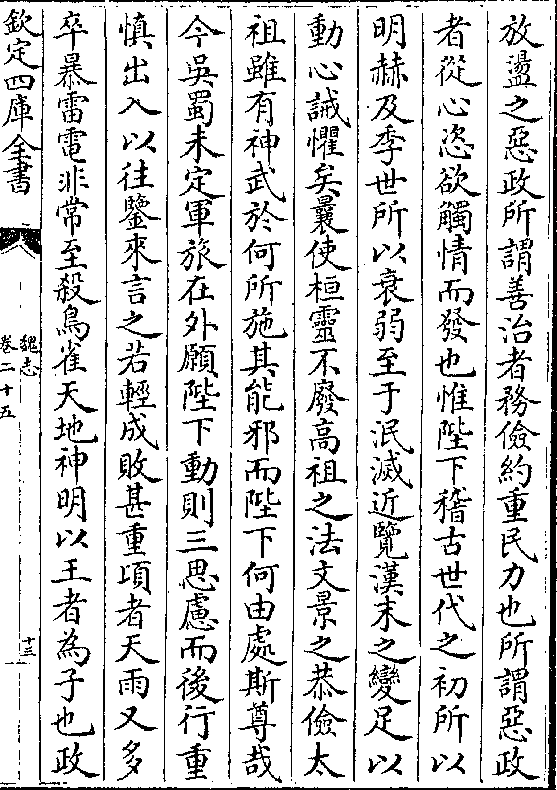 放盪之惡政所謂善治者務儉約重民力也所謂惡政
者從心恣欲觸情而發也惟陛下稽古世代之初所以
明赫及季世所以衰弱至于泯滅近覽漢末之變足以
動心誡懼矣曩使桓靈不廢高祖之法文景之恭儉太
祖雖有神武於何所施其能邪而陛下何由處斯尊哉
今吳蜀未定軍旅在外願陛下動則三思慮而後行重
慎出入以往鑒來言之若輕成敗甚重頃者天雨又多
卒暴雷電非常至殺鳥雀天地神明以王者為子也政
欽定四庫全書
魏志
卷二十五
十三